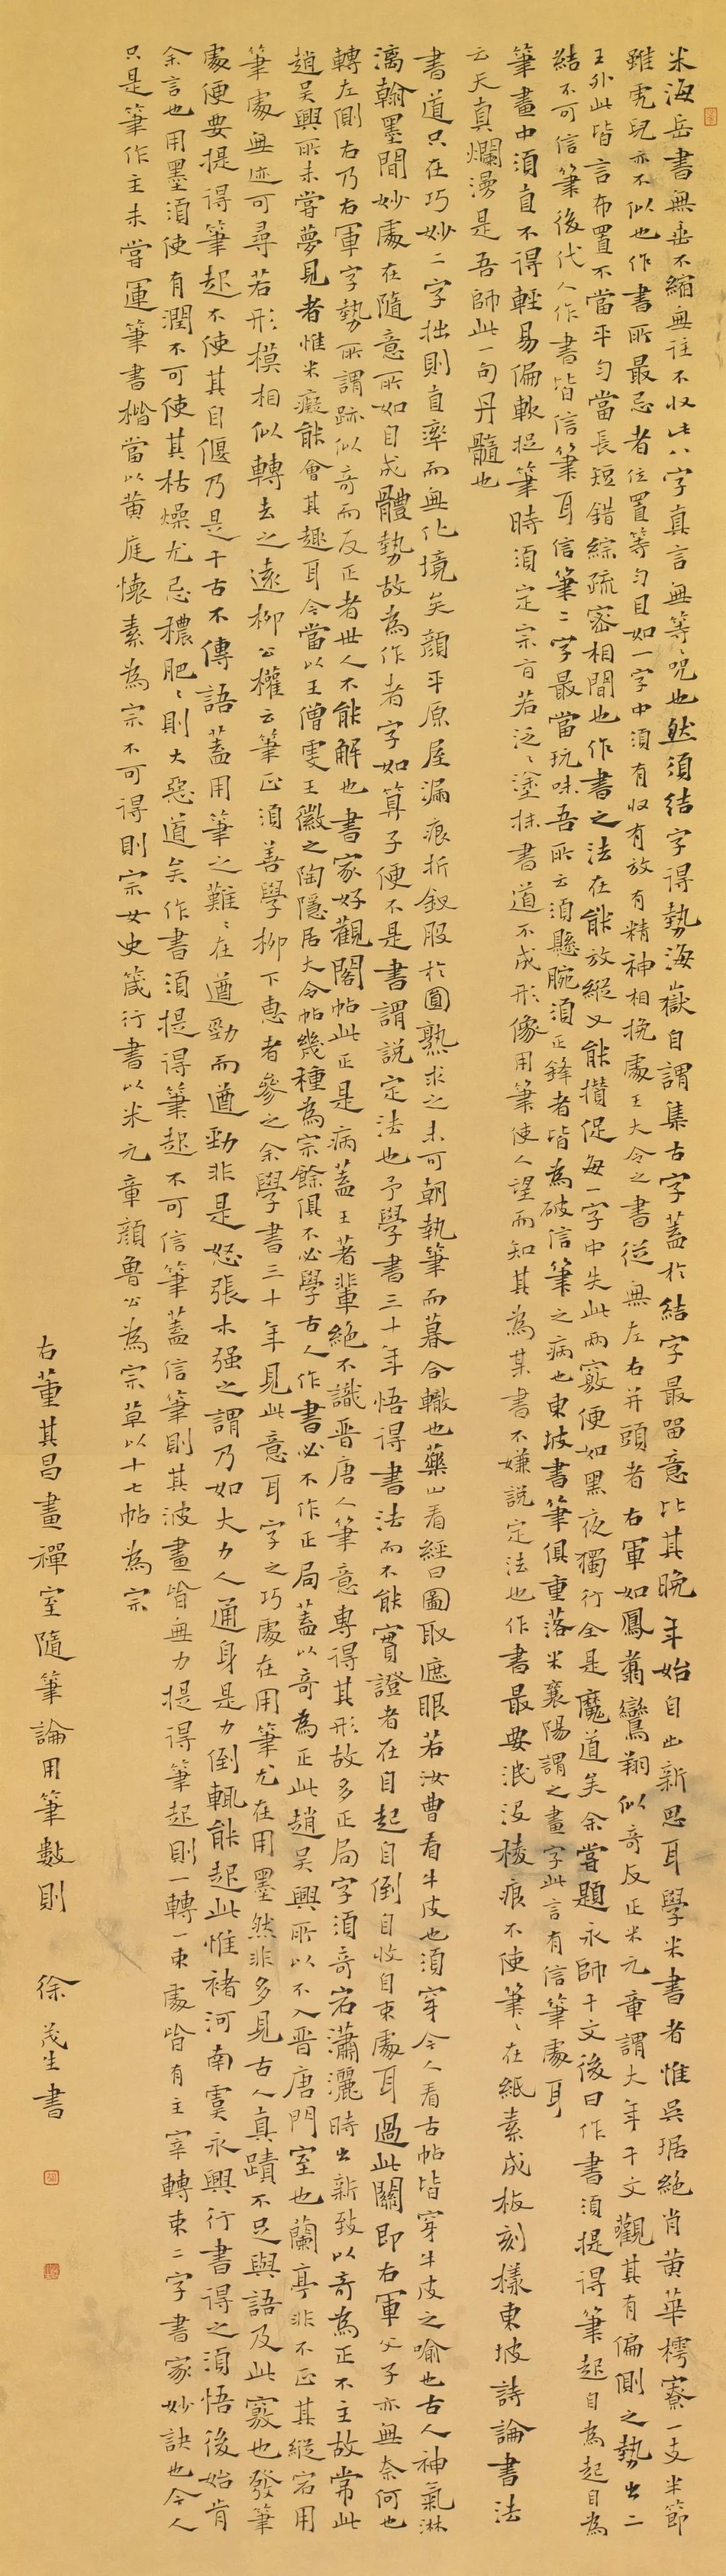 米海岳書無垂不縮無往不收此八字真言無等〻呪也然須結字得勢海嶽自謂集古字蓋於結字最留意比其晚年始自出新思耳學米書者惟吳琚絕肖黃華樗寮一支半節
雖虎兒亦不似也作書所最忌者位置等勻且如一字中須有收有放有精神相挽處王大令之書從無左右并頭者右軍如鳳翥鸞翔似奇反正米元章謂大年千文觀其有偏側之勢出二
王外此皆言布置不當平勻當長短錯綜疏密相間也作書之法在能放縱又能攢促每一字中失此兩竅便如黑夜獨行全是魔道矣余嘗題永師千文後曰作書須提得筆起自為起自為
結不可信筆後代人作書皆信筆耳信筆二字最當玩味吾所云須懸腕須正鋒者皆為破信筆之病也東坡書筆俱重落米襄陽謂之畫字此言有信筆處耳
筆畫中須直不得輕易偏軟捉筆時須定宗旨若泛〻塗抹書道不成形像用筆使人望而知其為某書不嫌說定法也作書最要泯沒棱痕不使筆〻在紙素成板刻樣東坡詩論書法
云天真爛漫是吾師此一句丹髓也
書道只在巧妙二字拙則直率而無化境矣顏平原屋漏痕折釵股於圓熟求之未可朝執筆而暮合轍也藥山看經曰圖取遮眼若汝曹看牛皮也須穿今人看古帖皆穿牛皮之喻也古人神氣淋
漓翰墨間妙處在隨意所如自成體勢故為作者字如算子便不是書謂說定法也予學書三十年悟得書法而不能實證者在自起自倒自收自束處耳過此關即右軍父子亦無奈何也
轉左側右乃右軍字勢所謂跡似奇而反正者世人不能解也書家好觀閣帖此正是病蓋王著輩絕不識晉唐人筆意專得其形故多正局字須奇宕瀟灑時出新致以奇為正不主故常此
趙吳興所未嘗夢見者惟米癡能會其趣耳今當以王僧虔王徽之陶隱居大令帖幾種為宗餘俱不必學古人作書必不作正局蓋以奇為正此趙吳興所以不入晉唐門室也蘭亭非不正其縱宕用
筆處無迹可尋若形模相似轉去之遠柳公權云筆正須善學柳下惠者參之余學書三十年見此意耳字之巧處在用筆尤在用墨然非多見古人真蹟不足與語及此竅也發筆
處便要提得筆起不使其自偃乃是千古不傳語蓋用筆之難〻在遒勁而遒勁非是怒張木强之謂乃如大力人通身是力倒輒能起此惟褚河南虞永興行書得之須悟後始肯
余言也用墨須使有潤不可使其枯燥尤忌穠肥〻則大惡道矣作書須提得筆起不可信筆蓋信筆則其波畫皆無力提得筆起則一轉一束處皆有主宰轉束二字書家妙訣也今人
只是筆作主未嘗運筆書楷當以黃庭懷素為宗不可得則宗女史箴行書以米元章顏魯公為宗草以十七帖為宗
右董其昌畫禪室隨筆論用筆數則 徐茂生書